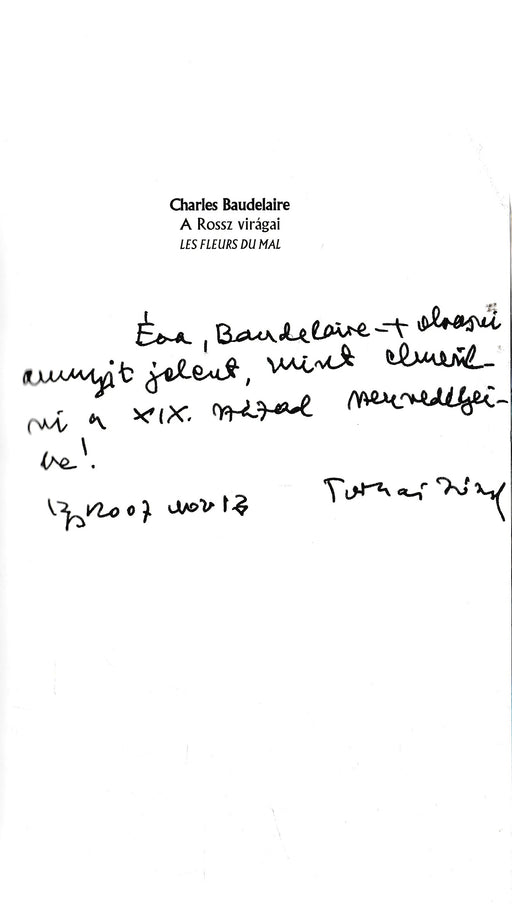 Charles Baudelaire
A Rossz virágai
LES FLEURS DU MAL
Éva, Baudelaire-t olvasni
annyit jelent, mint elmerül-
ni a XIX. század szenvedélyei-
be!
2007 nov 13
Tornai József